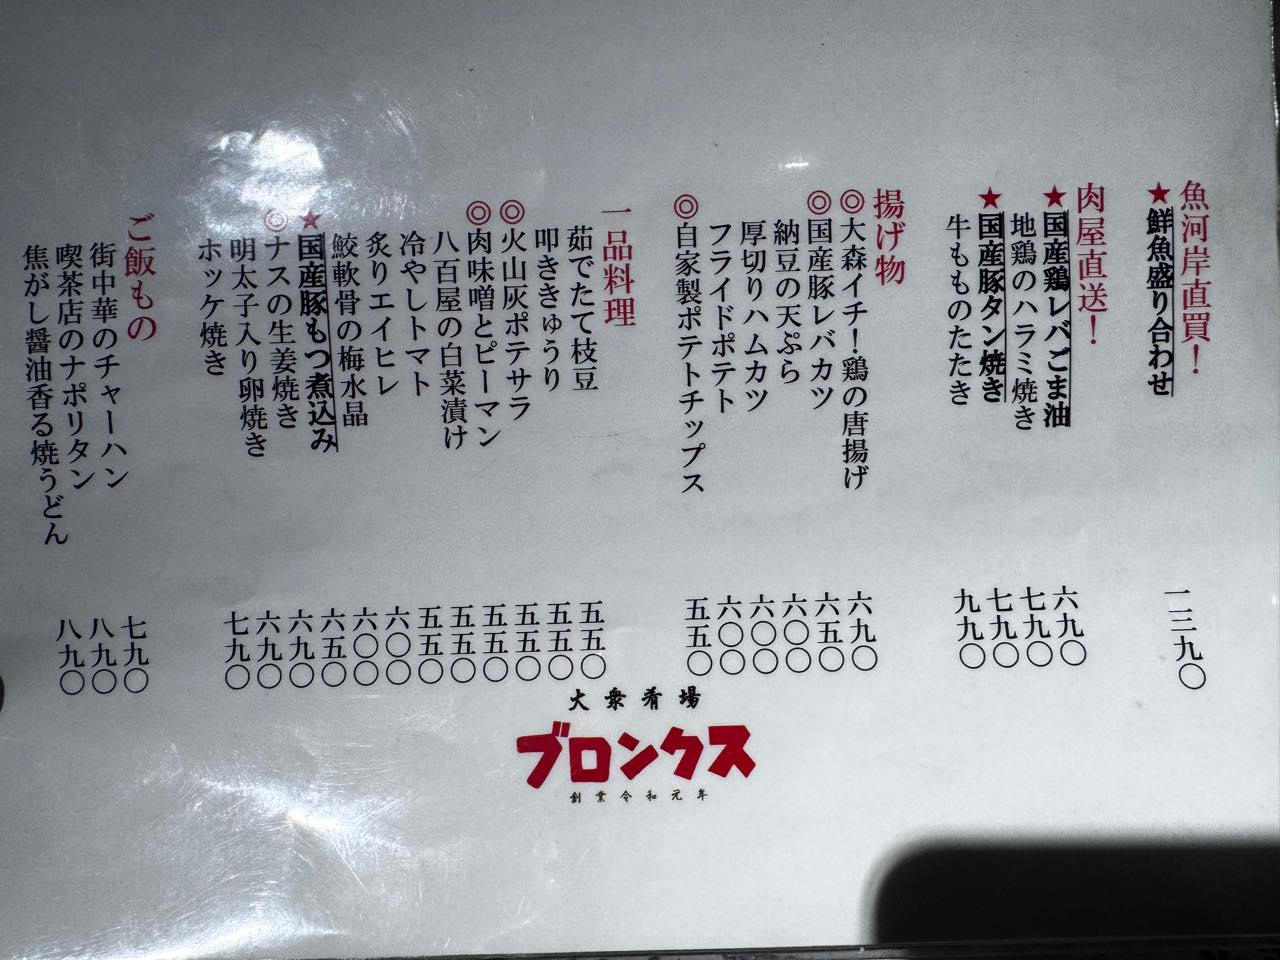 魚河岸直買！
★鮮魚盛り合わせ 一三九〇
肉屋直送！
★国産鶏レバごま油 六九〇
地鶏のハラミ焼き 七九〇
★国産豚タン焼き 七九〇
牛もものたたき 九九〇
揚げ物
◎大森イチ！鶏の唐揚げ 六九〇
◎国産豚レバカツ 六五〇
納豆の天ぷら 六〇〇
厚切りハムカツ 六〇〇
フライドポテト 六〇〇
◎自家製ポテトチップス 五五〇
一品料理
茹でたて枝豆 五五〇
叩ききゅうり 五五〇
◎火山灰ポテサラ 五五〇
◎肉味噌とピーマン 五五〇
八百屋の白菜漬け 五五〇
冷やしトマト 五五〇
炙りエイヒレ 六〇〇
鮫軟骨の梅水晶 六〇〇
★国産豚もつ煮込み 六五〇
◎ナスの生姜焼き 六九〇
明太子入り卵焼き 六九〇
ホッケ焼き 七九〇
ご飯もの
街中華のチャーハン 七九〇
喫茶店のナポリタン 八九〇
焦がし醤油香る焼うどん 八九〇
大衆肴場
ブロンクス
創業令和元年